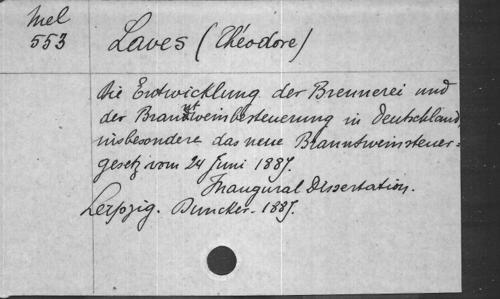 Mel
553
Laves (Théodore)
Die Entwicklung der Brennerei und
der Branntweinbesteuerung in Deutschland
insbesondere das neue Branntweinsteuer-
gesetz vom 24 Juni 1887.
Inaugural Dissertation.
Leipzig. Duncker. 1887.